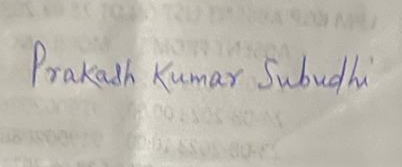 Prakash Kumar Subudhi